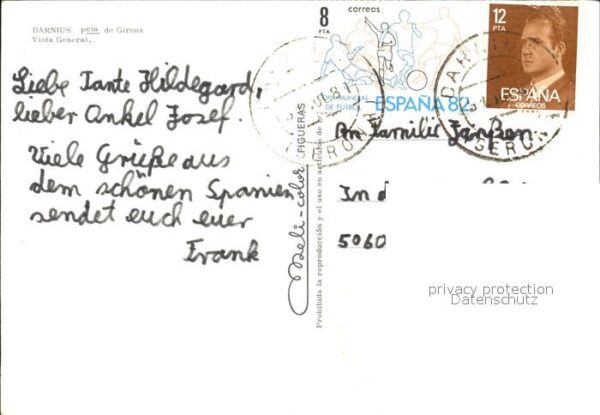 DARNIUS pcia de Girona
Vista General.
Liebe Tante Hildegard,
lieber Ankel Josef.
Viele Grüße aus
dem schönen Spanien
sendet euch euer
Frank
Mele-color (FIGUERAS)
Prohibida la reproducción y el uso en artículos de
8
PTA
correos
COPA MUNDIAL
DE FUTBOL
ESPAÑA 82
12
PTA
ESPAÑA
CORREOS
An Familie Janßen
In d
5060
privacy protection
Datenschutz